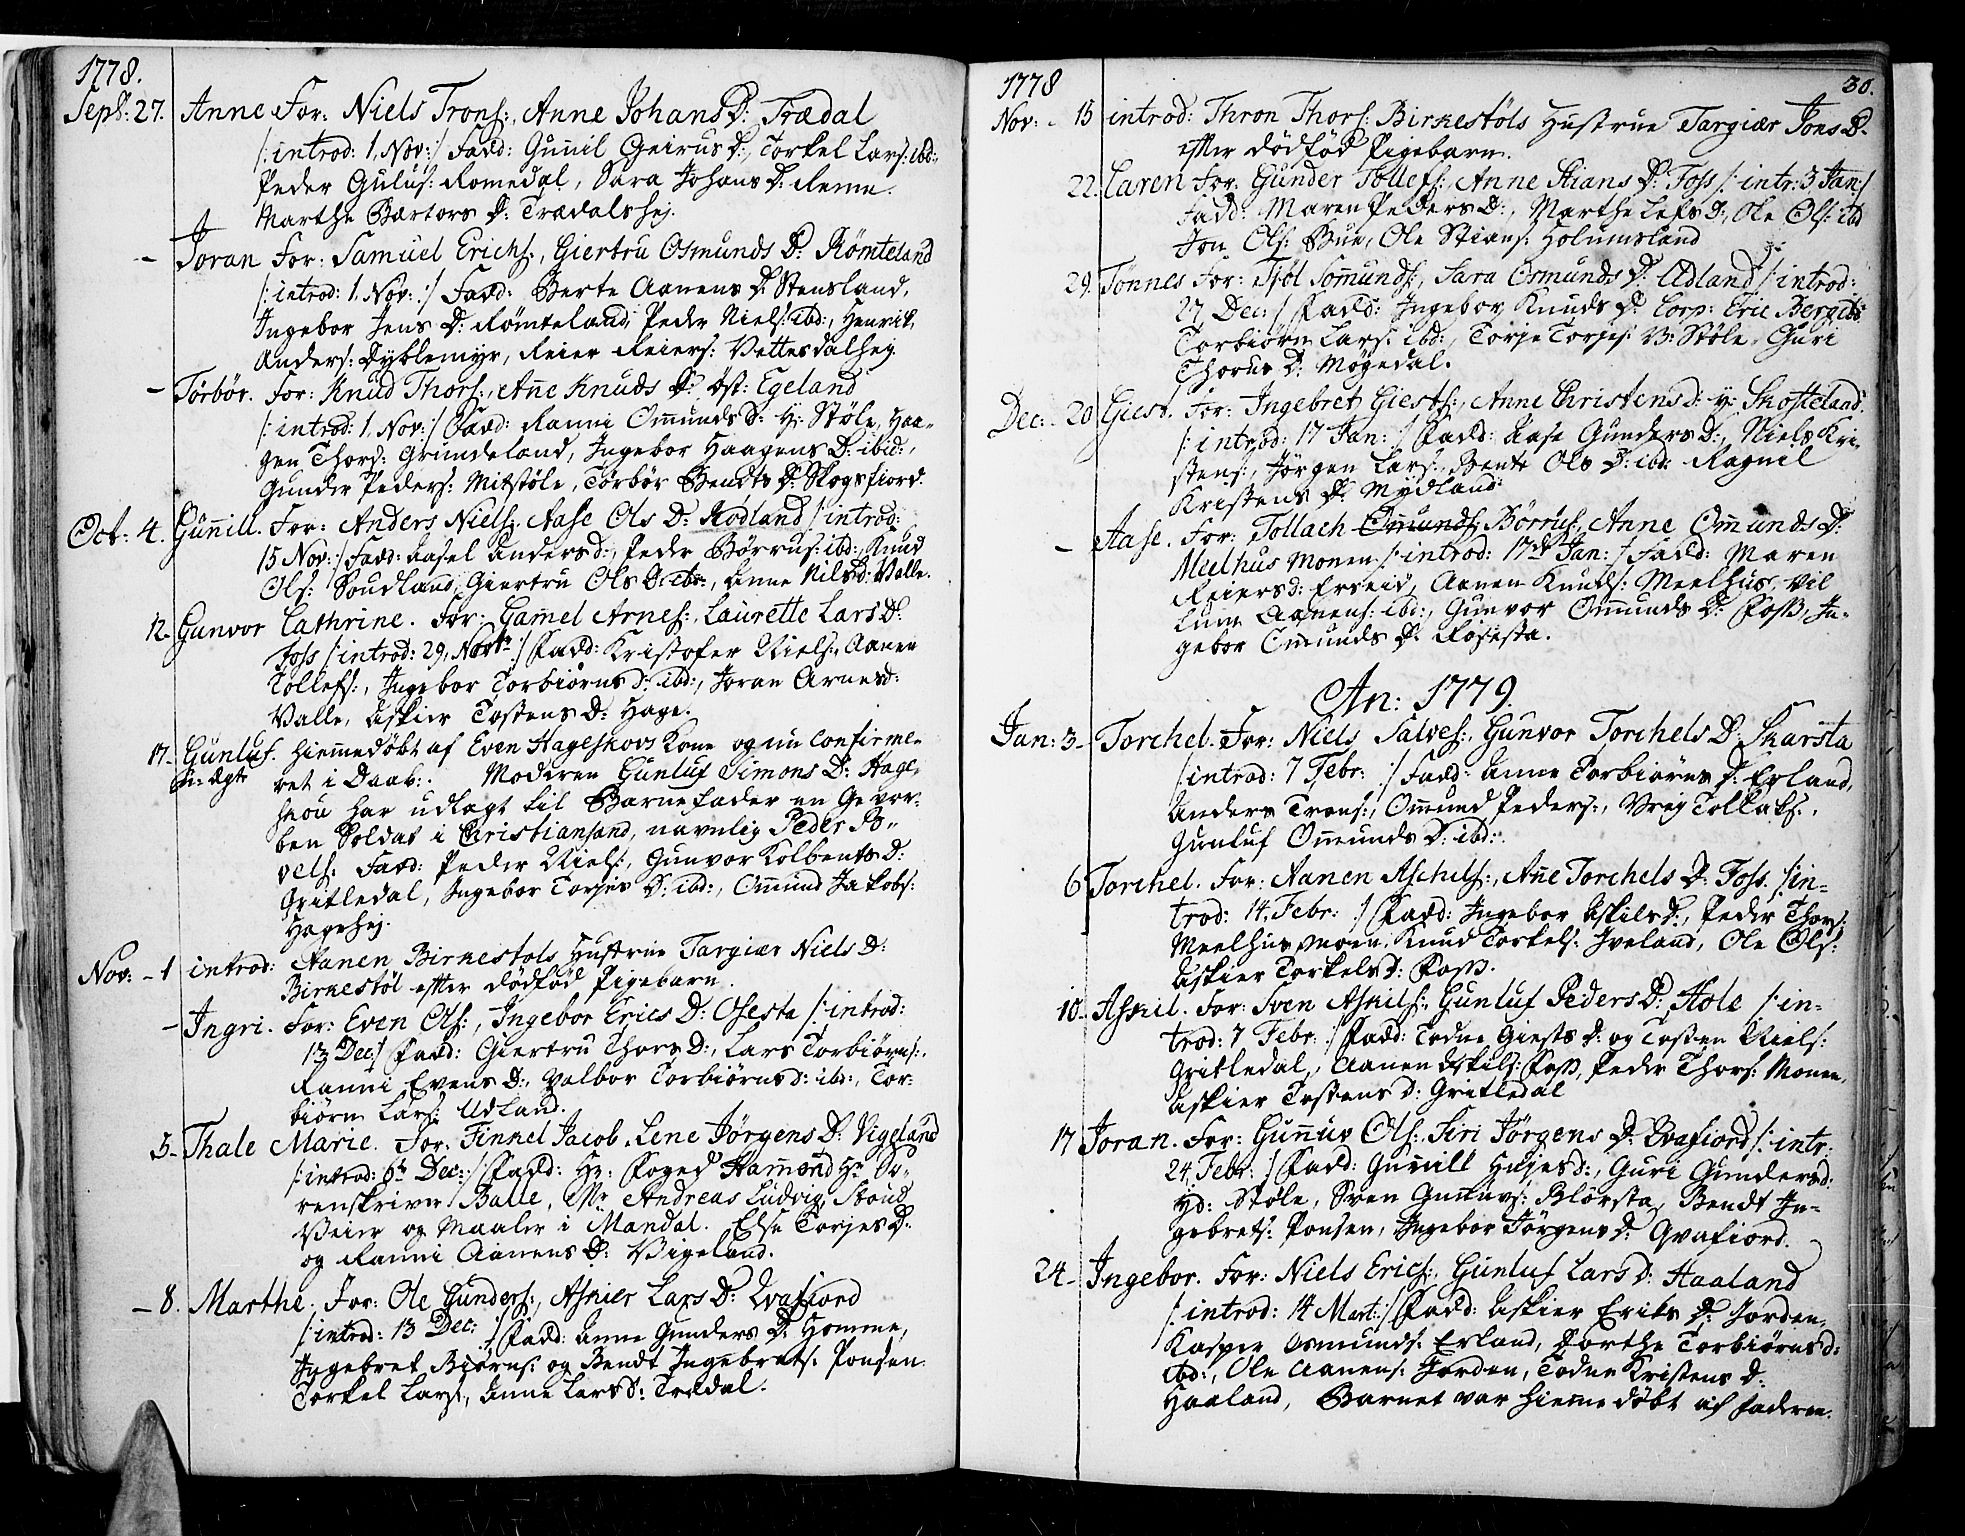 1778.
Sept: 27. Anne For: Niels Trons:, Anne Johans D: Trædal
/: introd: 1. Nov: :/ Fadd: Gunnil Geirus D:, Torkel Lars: ibd:,
Peder Gulus: Romedal, Sara Johans D: Reme.
Marthe Bærtors D: Trædalshej.
- Joran For: Samuel Erichs:, Giertru Osmunds D: Rømteland
/: introd: 1. Nov: :/ Fadd: Berte Aanens D: Stensland,
Ingebor Jens D: Rømteland, Peder Niels: ibd:, Henrik
Anders: Dyblemyr, Reier Reiers: Vettesdalhej.
- Tørbør. For: Knud Thors:, Añe Knuds D: Øst: Egeland
/: introd: 1. Nov: :/ Fadd: Ranni Omunds D: Y: Støle, Haa-
gen Thors: Grundeland, Ingebor Haagens D: ibid:,
Gunder Peders: Mitstøle, Torbør Bendts D: Skogsfiord.
Oct: 4. Guñill. For: Anders Niels:, Aase Ols D: Rødland /: introd:
15 Nov: :/ Fadd: Aasel Anders d:, Peder Børrus: ibd:, Knud
Ols: Soudland, Giertru Ols D: ibd:, Anne Nils d: Valle.
12. Gunvor Cathrine. For: Gamel Arnes:, Laurette Lars D:
Foss /: introd: 29. Novbr: :/ Fadd: Kristofer Niels:, Aanen
Tollefs:, Ingebor Torbiørns d: ibd:, Joran Arnes d:
Valle, Askier Tostens D: Hage.
17. Gunluf. Hiemmedøbt af Even Hageskovs Kone og nu confirme-
u: ægte ret i Daab:. Moderen Gunluf Simons D: Hage-
skou har udlagt til Barnefader en Gevor-
ben Soldat i Christiansand, navnlig Peder Po-
vels: Fadd: Peder Niels:, Gunvor Kolbents D:
Gritledal, Ingebor Torjes D: ibd:, Omund Jakobs:
Hagehej.
Nov: - 1 introd: Aanen Birkestøls Hustrue Targiær Niels D:
Birkestøl efter dødfød Pigebarn.
- Ingri. For: Even Ols:, Ingebor Erics D: Osesta /: introd:
13 Dec: :/ Fadd: Giertru Thors D:, Lars Torbiørns:,
Ranni Evens D:, Valbor Torbiørns d: ibd:, Tor-
biørn Lars: Udland.
5. Thale Marie. For: Finkel Jacob, Lene Jørgens D: Vigeland
/: introd: 6te Dec: :/ Fadd: Hr: Foged Hammond Hr So-
renskriver Balle, Mr Andreas Ludvig Stoud
Veier og Maaler i Mandal. Else Torjes D:
og Ranni Aanens D: Vigeland.
- 8. Marthe. For: Ole Gunders:, Askier Lars D: Qvafiord
/: introd: 13 Dec: :/ Fadd: Anne Gunders D: Homme,
Ingebret Biørns: og Bendt Ingebrets: Ponsen
Torkel Lars:, Anne Lars d: Trædal.
1778 30.
Nov: - 15 introd: Thron Thors: Birkestøls Hustrue Targiær Jons D:
efter dødfød Pigebarn.
22. Caren For: Gunder Tollefs:, Anne Stians D: Foss /: intr: 3 Jan: :/
Fadd: Maren Peders D:, Marthe Lefs D:, Ole Ols: ibd
Jon Ols: Bue, Ole Stians: Holumsland
29. Tønnes For: Tjøl Somunds:, Sara Osmunds D: Udland /: introd:
27 Dec: :/ Fadd: Ingebor Knuds D: Corp: Eric Berg ibd:
Torbiørn Lars: ibd:, Torje Torjes: V: Støle, Guri
Thorus D: Møgedal.
Dec: - 20 Giest. For: Ingebret Giests:, Anne Christens d: y: Skofteland.
/: introd: 17 Jan: :/ Fadd: Aase Gunders D:, Niels Kri-
stens:, Jørgen Lars:, Bente Ols D: ibd: Ragnil
Kristens D: Mydland
- Aase. For: Tollach Omunds: Børrus:, Anne Omunds D:
Meelhus Monen /: introd: 17de Jan: :/ Fadd: Maren
Reiers d: Erseid, Aanen Knuds: Meelhus, Vil
lum Aanens: ibd:, Gunvor Omunds D: Foss, In-
gebor Omunds D: Røsesta.
An: 1779.
Jan: 3 - Torchel. For: Niels Salves:, Gunvor Torchels D: Skarsta
/: introd: 7 Febr: :/ Fadd: Anne Torbiørns D: Erland,
Anders Trons:, Omund Peders:, Vrej Tollaks:,
Gunluf Omunds D: ibd:.
6 Torchel. For: Aanen Aschils:, Añe Torchels D: Foss. /: in-
trod: 14. Febr: :/ Fadd: Ingebor Askils d:, Peder Thors:
Meelhusmoen, Knud Torkels: Iveland, Ole Ols:
Askier Torkels d: Foss.
10. Askil. For: Sven Askils:, Gunluf Peders D: Hole /: in-
trod: 7 Febr: :/ Fadd: Todne Giests D: og Tosten Niels:
Gritledal, Aanen Askils: Foss, Peder Thors: Monen,
Askier Tostens d: Gritledal
17 Joran. For: Guñuv Ols:, Siri Jørgens D: Qvafiord /: intr:
24. Febr: :/ Fadd: Gunill Hujes d:, Guri Gunders d:
Yd: Støle, Sven Gunuvs: Blørsta, Bendt In-
gebrets: Ponsen, Ingebor Jørgens D: Qvafiord.
24 - Ingebor. For: Niels Erics:, Gunluf Lars d: Haaland
/: introd: 14 Mart: :/ Fadd: Askier Eriks D: Jorden,
Kasper Osmunds: Erland, Dorthe Torbiørns d:
ibd:, Ole Aanens: Jorden, Todne Kristens D:
Haaland, Barnet var hiemme døbt af Faderen.